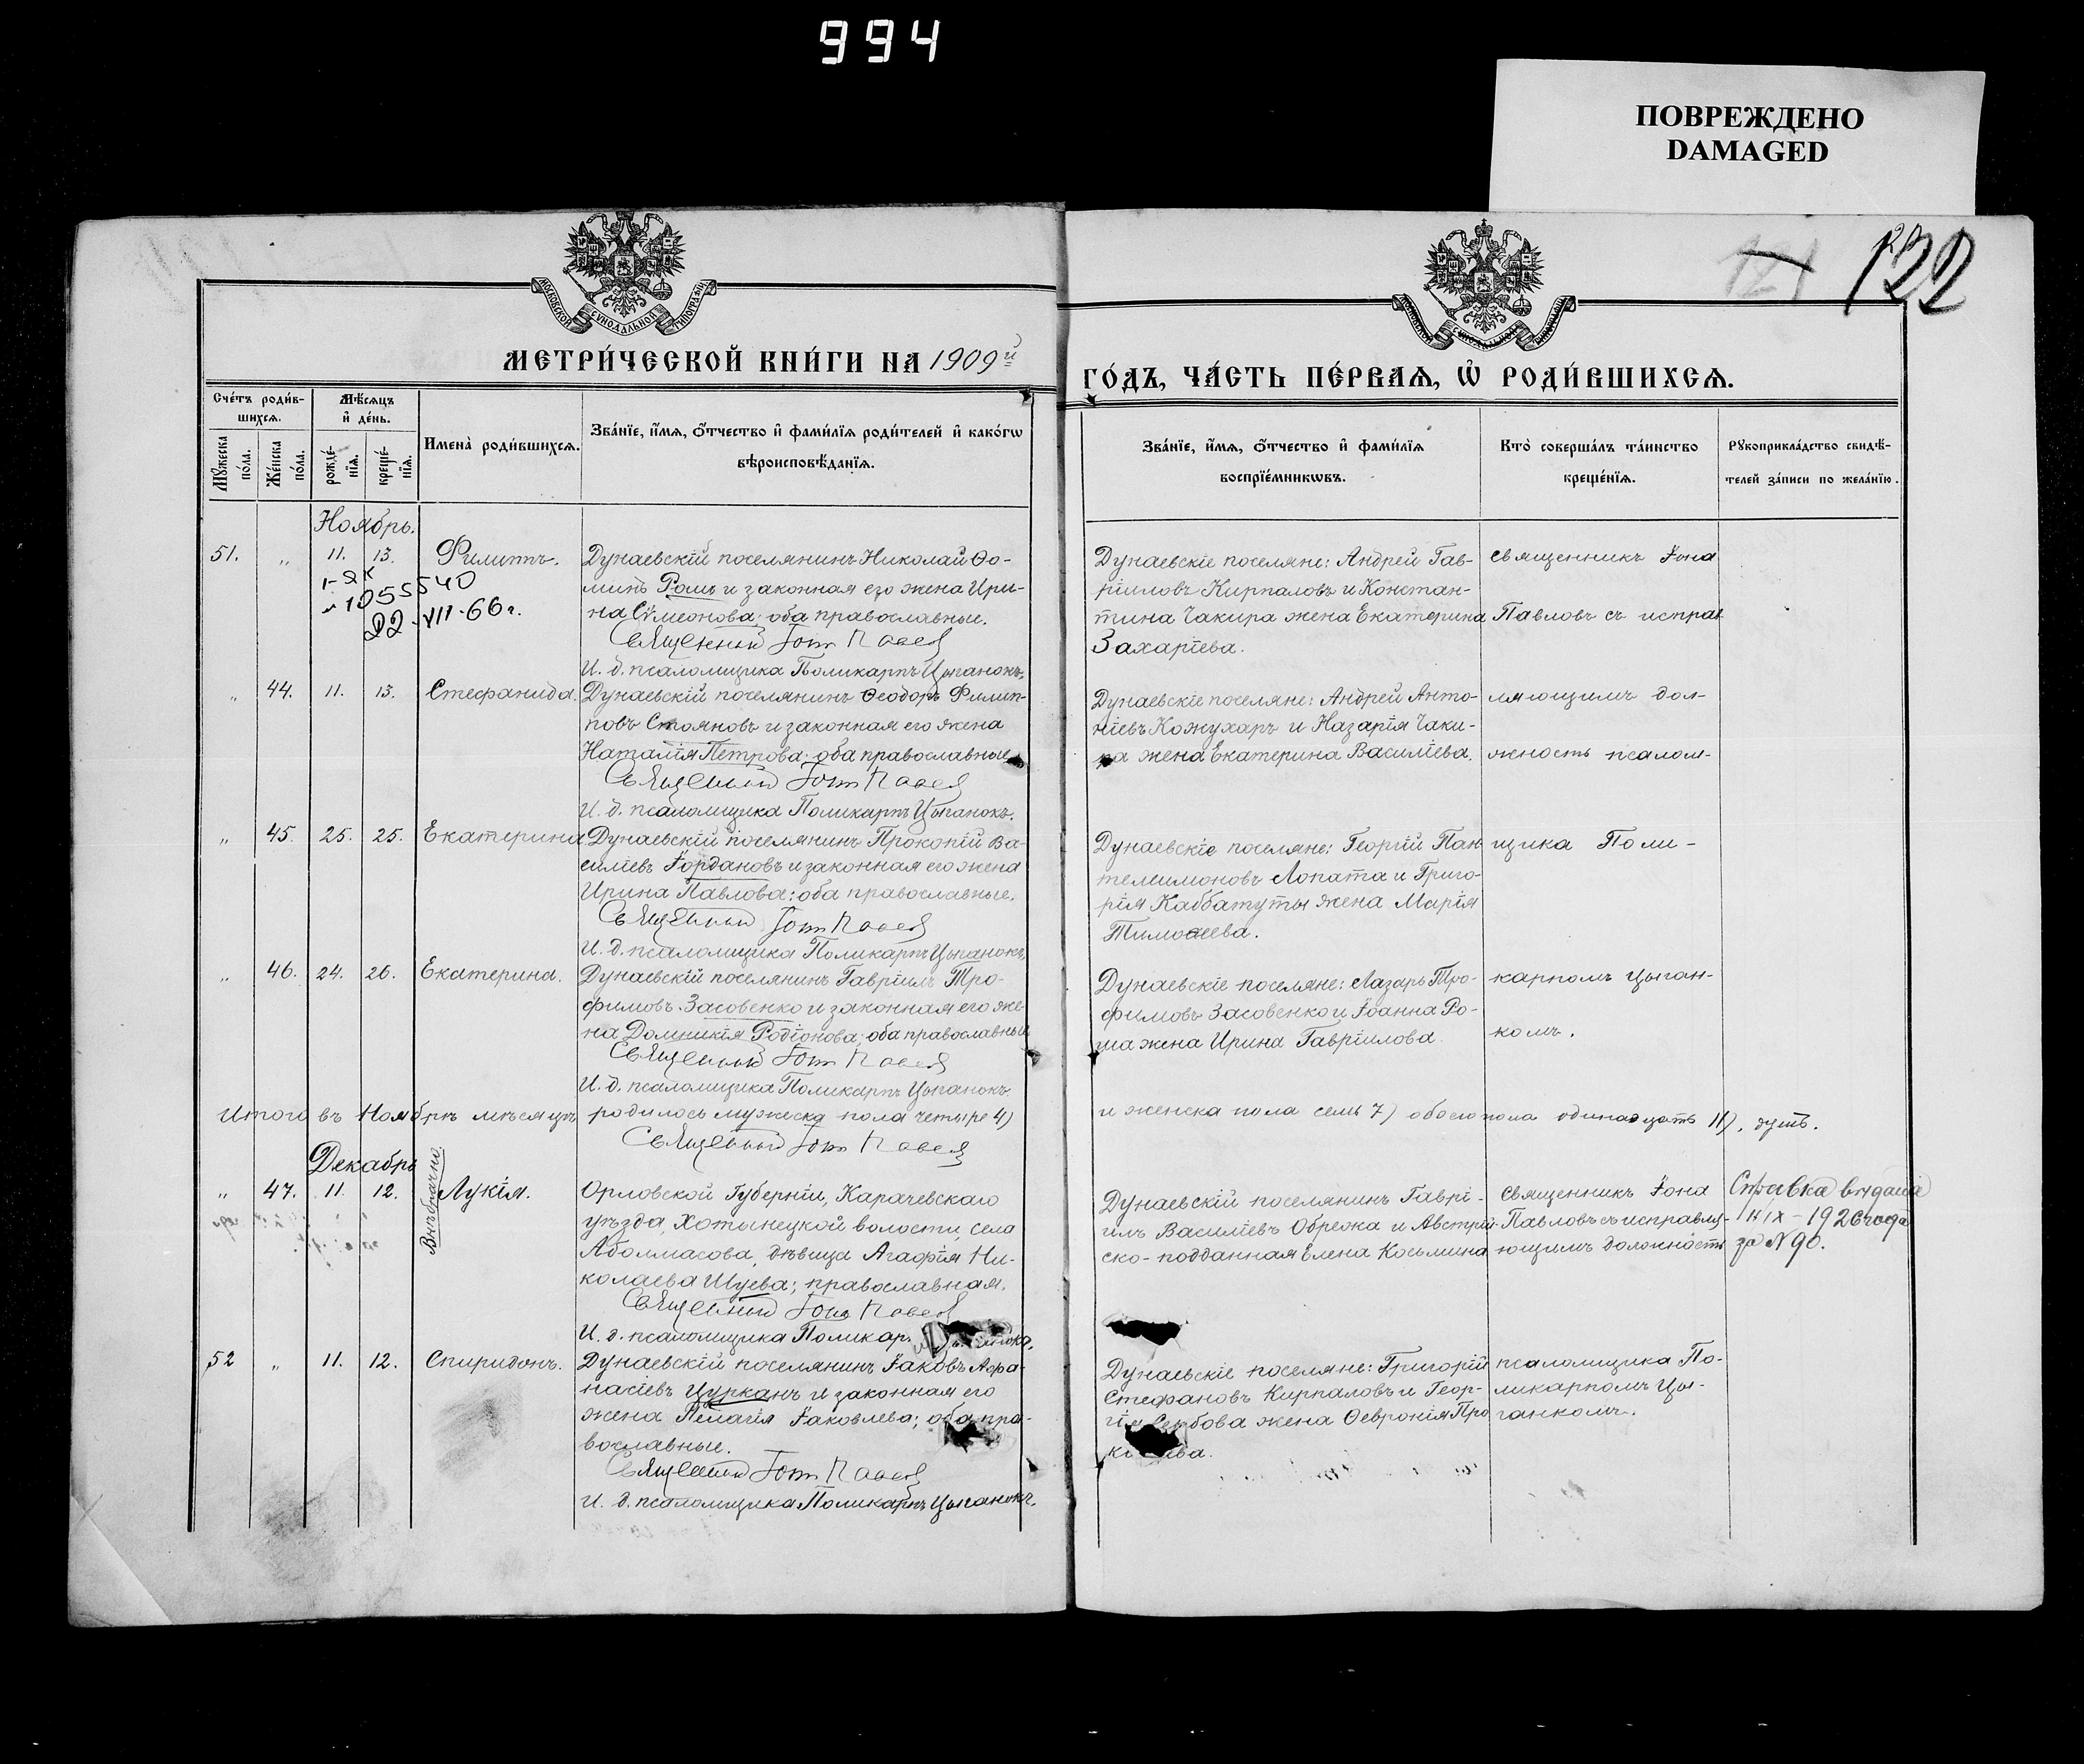 994
ПОВРЕЖДЕНО
DAMAGED
121
122
МОСКОВСКОЙ СѴНОДАЛЬНОЙ ТИПОГРАФІИ
МЕТРИ́ЧЕСКОЙ КНИ́ГИ НА 1909й
ГО́ДЪ, ЧА́СТЬ ПЕ́РВАѦ, Ѡ҆ РОДИ́ВШИХСѦ.
Сче́тъ роди́в-
шихсѧ.
Мѣ́сѧцъ
и҆ де́нь.
Мꙋ́жеска
по́ла.
Же́нска
по́ла.
рожде́-
нїѧ.
креще́-
нїѧ.
Имена̀ роди́вшихсѧ.
Зва́нїе, и҆́мѧ, ѻ҆́тчество и҆ фами́лїѧ роди́телей и҆ како́гѡ
вѣроисповѣ́данїѧ.
Зва́нїе, и҆́мѧ, ѻ҆́тчество и҆ фами́лїѧ
воспрїе́мникѡвъ.
Кто̀ соверша́лъ та́инство
креще́нїѧ.
Рꙋкоприкла́дство свидѣ́-
телей за́писи по жела́нїю.
Ноябрь.
51. „ 11. 13. Филиппъ.
1055540
22-VII-66 г.
Дунаевскій поселянинъ Николай Ѳо-
минъ Рошъ и законная его жена Ири-
на Сѵмеонова; оба православные.
Священникъ Іоан Павлов
И. д. псаломщика Поликарпъ Цыганокъ.
Дунаевскіе поселяне: Андрей Гав-
ріиловъ Кирпаловъ и Констан-
тина Чакира жена Екатерина
Захаріева.
Священникъ Іона
Павловъ съ исправ
„ 44. 11. 13. Стефанида.
Дунаевскій поселянинъ Ѳеодоръ Филип-
повъ Стояновъ и законная его жена
Наталія Петрова; оба православные
Священникъ Іоан Павлов
И. д. псаломщика Поликарпъ Цыганокъ.
Дунаевскіе поселяне: Андрей Анто-
ніевъ Кожухаръ и Назарія Чаки-
ра жена Екатерина Василіева.
ляющимъ дол-
жность псалом-
„ 45. 25. 25. Екатерина
Дунаевскій поселянинъ Прокопій Ва-
силіевъ Іордановъ и законная его жена
Ирина Павлова; оба православные.
Священникъ Іоан Павлов
И. д. псаломщика Поликарпъ Цыганокъ.
Дунаевскіе поселяне: Георгій Пан
телимоновъ Лопата и Григо-
рія Каббатуты жена Марія
Тимоѳеева.
щика Поли-
„ 46. 24. 26. Екатерина.
Дунаевскій поселянинъ Гавріилъ Тро-
фимовъ Засовенко и законная его же
на Домникія Родіонова; оба православные
Священникъ Іоан Павлов
И. д. псаломщика Поликарпъ Цыганокъ
Дунаевскіе поселяне: Лазарь Тро-
фимовъ Засовенко и Іоанна Ро-
ша жена Ирина Гавріилова.
карпомъ Цыган-
комъ.
Итого въ Ноябрѣ мѣсяцѣ родилось мужеска пола четыре 4) и женска пола семь 7) обоего пола одинадцать 11), душъ.
Священникъ Іоан Павлов
Декабрь
Внѣбрачно
„ 47. 11. 12. Лукія.
Орловской Губерніи, Карачевскаго
уѣзда, Хотынецкой волости, села
Аболмасова, дѣвица Агафія Ни-
колаева Шуева; православная.
Священникъ Іоан Павлов
И. д. псаломщика Поликар.
Дунаевскій поселянинъ Гаврі-
илъ Василіевъ Обрежа и Австрій-
ско-подданная Елена Косьмина
Священникъ Іона
Павловъ съ исправля-
ющимъ должность
Справка выдана
11 IX-1926 года
за №90.
52 „ 11. 12. Спиридонъ.
Дунаевскій поселянинъ Іаковъ Аѳа-
насіевъ Цурканъ и законная его
жена Пелагія Іаковлева; оба пра-
вославные.
Священникъ Іоан Павлов
И. д. псаломщика Поликарпъ Цыганокъ.
Дунаевскіе поселяне: Григорій
Стефановъ Кирпаловъ и Геор-
жена Ѳевронія Про
псаломщика По-
ликарпомъ Цы-
ганкомъ.